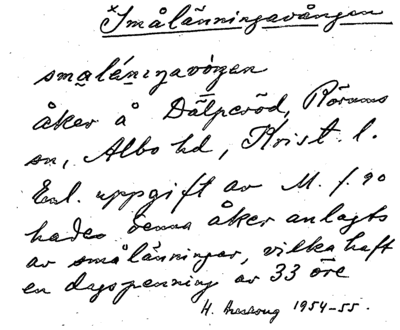 *Smålänningavången
smalánıŋavóŋen
åker å Dälperöd, Rörums
sn, Albo hd, Krist. l.
Enl. uppgift av M. f. 90
hade denna åker anlagts
av smålänningar, vilka haft
en dagspenning av 33 öre
H. 1954-55.